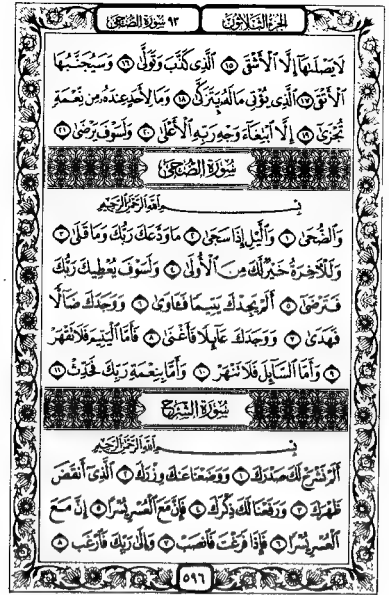 الجزء الثلاثون
٩٣ سورة الضحى
لَا يَصْلَىٰهَآ إِلَّا ٱلْأَشْقَى ١٥ ٱلَّذِى كَذَّبَ وَتَوَلَّىٰ ١٦ وَسَيُجَنَّبُهَا
ٱلْأَتْقَى ١٧ ٱلَّذِى يُؤْتِى مَالَهُۥ يَتَزَكَّىٰ ١٨ وَمَا لِأَحَدٍ عِندَهُۥ مِن نِّعْمَةٍ
تُجْزَىٰٓ ١٩ إِلَّا ٱبْتِغَآءَ وَجْهِ رَبِّهِ ٱلْأَعْلَىٰ ٢٠ وَلَسَوْفَ يَرْضَىٰ ٢١
سورة الضحى
بِسْمِ ٱللَّهِ ٱلرَّحْمَٰنِ ٱلرَّحِيمِ
وَٱلضُّحَىٰ ١ وَٱلَّيْلِ إِذَا سَجَىٰ ٢ مَا وَدَّعَكَ رَبُّكَ وَمَا قَلَىٰ ٣
وَلَلْـَٔاخِرَةُ خَيْرٌ لَّكَ مِنَ ٱلْأُولَىٰ ٤ وَلَسَوْفَ يُعْطِيكَ رَبُّكَ
فَتَرْضَىٰٓ ٥ أَلَمْ يَجِدْكَ يَتِيمًا فَـَٔاوَىٰ ٦ وَوَجَدَكَ ضَآلًّا
فَهَدَىٰ ٧ وَوَجَدَكَ عَآئِلًا فَأَغْنَىٰ ٨ فَأَمَّا ٱلْيَتِيمَ فَلَا تَقْهَرْ
٩ وَأَمَّا ٱلسَّآئِلَ فَلَا تَنْهَرْ ١٠ وَأَمَّا بِنِعْمَةِ رَبِّكَ فَحَدِّثْ ١١
سورة الشرح
بِسْمِ ٱللَّهِ ٱلرَّحْمَٰنِ ٱلرَّحِيمِ
أَلَمْ نَشْرَحْ لَكَ صَدْرَكَ ١ وَوَضَعْنَا عَنكَ وِزْرَكَ ٢ ٱلَّذِىٓ أَنقَضَ
ظَهْرَكَ ٣ وَرَفَعْنَا لَكَ ذِكْرَكَ ٤ فَإِنَّ مَعَ ٱلْعُسْرِ يُسْرًا ٥ إِنَّ مَعَ
ٱلْعُسْرِ يُسْرًا ٦ فَإِذَا فَرَغْتَ فَٱنصَبْ ٧ وَإِلَىٰ رَبِّكَ فَٱرْغَب ٨
٥٩٦